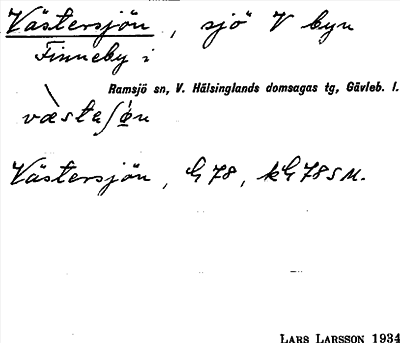 Västersjön, sjö V byn
Finneby i
Ramsjö sn, V. Hälsinglands domsagas tg, Gävleb. l.
Västersjön, G 78, kG 78 SM.
LARS LARSSON 1934